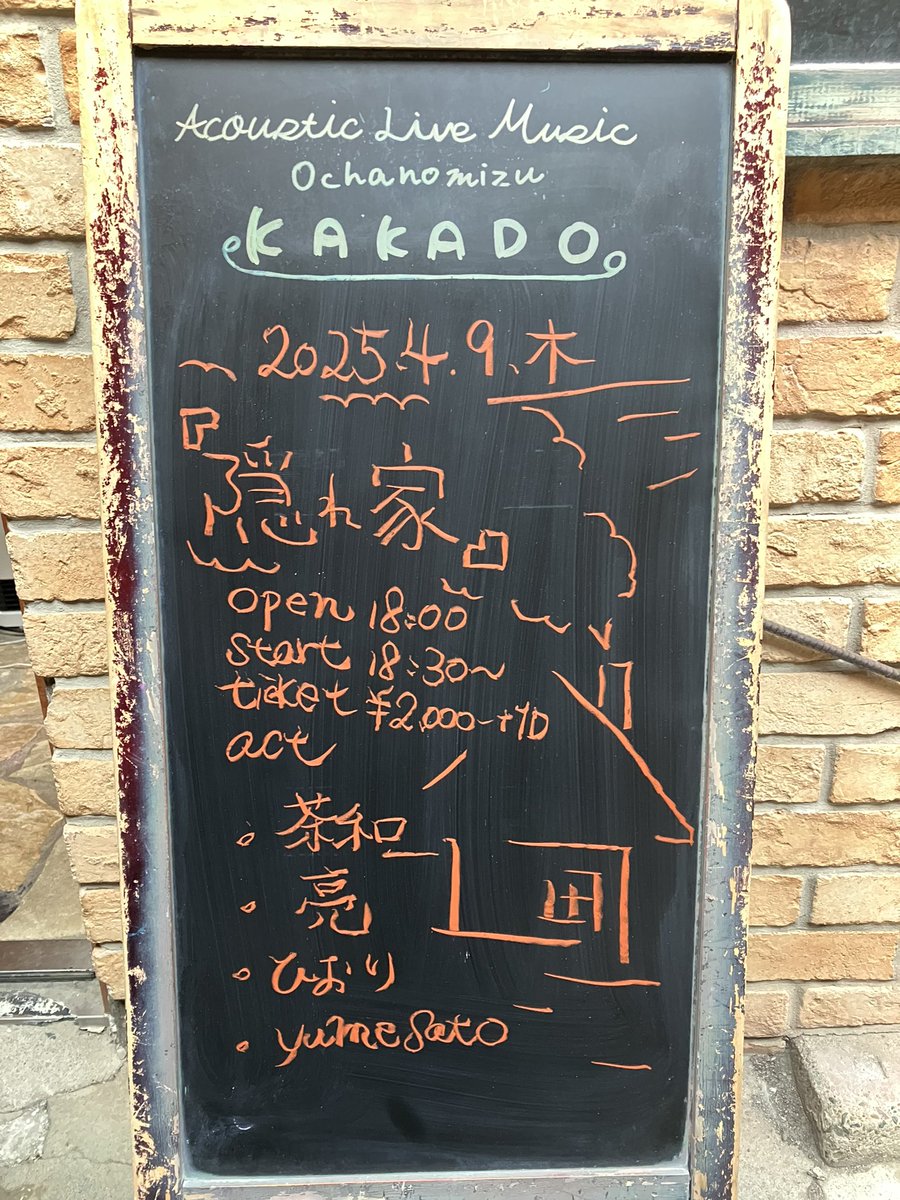 Acoustic Live Music
Ochanomizu
KAKADO
2025.4.9.木
『隠れ家』
open 18:00
start 18:30~
ticket ¥2,000-+1D
act
・茶和
・亮
・ひおり
・yumesato